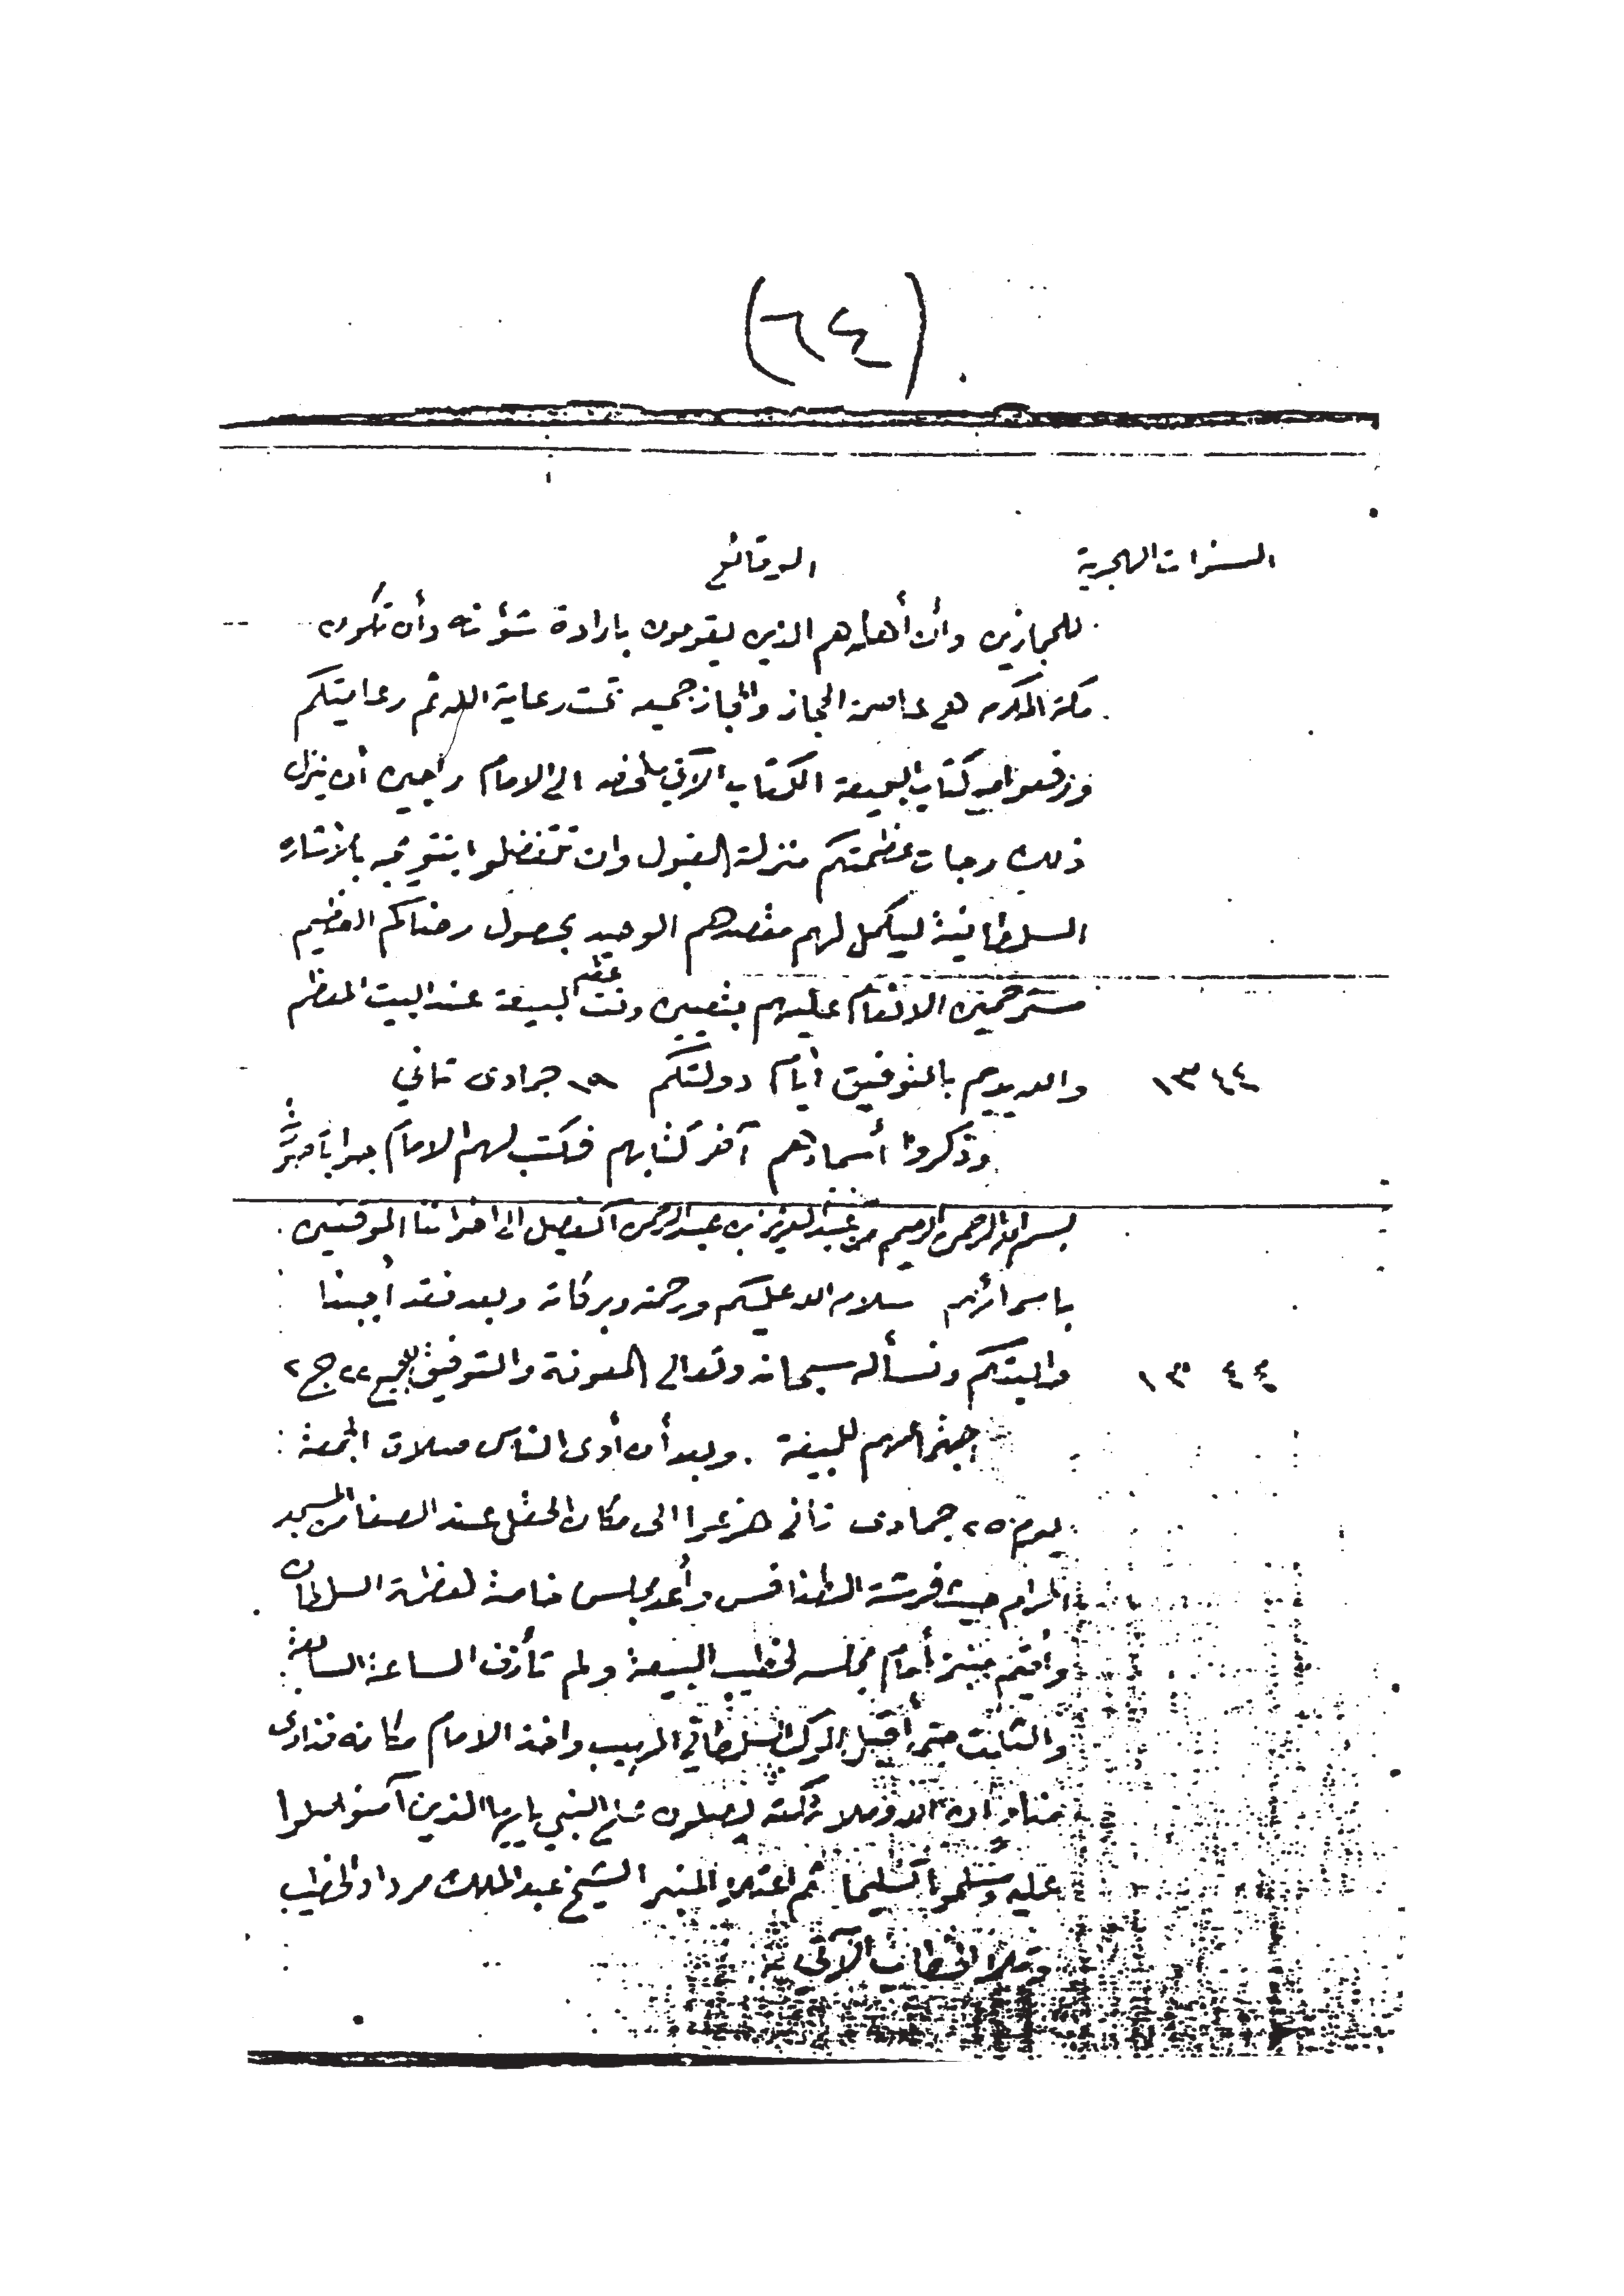 (٤٦)
السنوات الهجرية الوقائع
للحجازين وأن أهله هم الذين يقومون بادارة شؤنه وأن تكون
مكة المكرمه هي عاصمة الحجاز والحجاز جميعه تحت رعاية الله ثم رعايتكم
ورفعوا مع كتاب البيعة الكتاب الآتي ملخصه الى الامام راجين أن ينزل
ذلك رجات عظمتكم منزلة القبول وان تتفضلوا بتتويجه بالاشاره
السلطانية ليكمل لهم مقصدهم الوحيد بحصول رضاكم العظيم
مسترحمين الانعام عليهم بتعيين وقت عقد البيعة عند البيت المعظم
١٣٤٤ والله يديم بالتوفيق أيام دولتكم ١٩ جمادى ثاني
وذكروا أسماءهم آخر كتابهم فكتب لهم الامام جوابا
بسم الله الرحمن الرحيم من عبد العزيز بن عبد الرحمن الفيصل الى اخواننا الموقعين
باسمائهم سلام الله عليكم ورحمته وبركاته وبعد فقد أجبنا
١٣٤٤ طلبتكم ونسأله سبحانه وتعالى المعونة والتوفيق للجميع ٢٢ ج ٢
اجتماعهم للبيعة . وبعد أن أدى الناس صلاة الجمعة
يوم ٢٥ جمادى ثاني هرعوا الى مكان الحفل عند الصفا من المسجد
الحرام حيث فرشة الطنافس وأعد مجلس خاصة لعظمة السلطان
وأقيم منبر أمام مجلسه لخطيب البيعة ولم تأزف الساعة السابعة
والثلث حتى أقبل الموكب السلطاني المهيب واخذ الامام مكانه فنادى
مناد ان الله وملائكته يصلون على النبي ياايها الذين آمنوا صلوا
عليه وسلموا تسليما ثم اعتلا المنبر الشيخ عبد الملك مرداد الخطيب
وتلا الخطاب الآتي